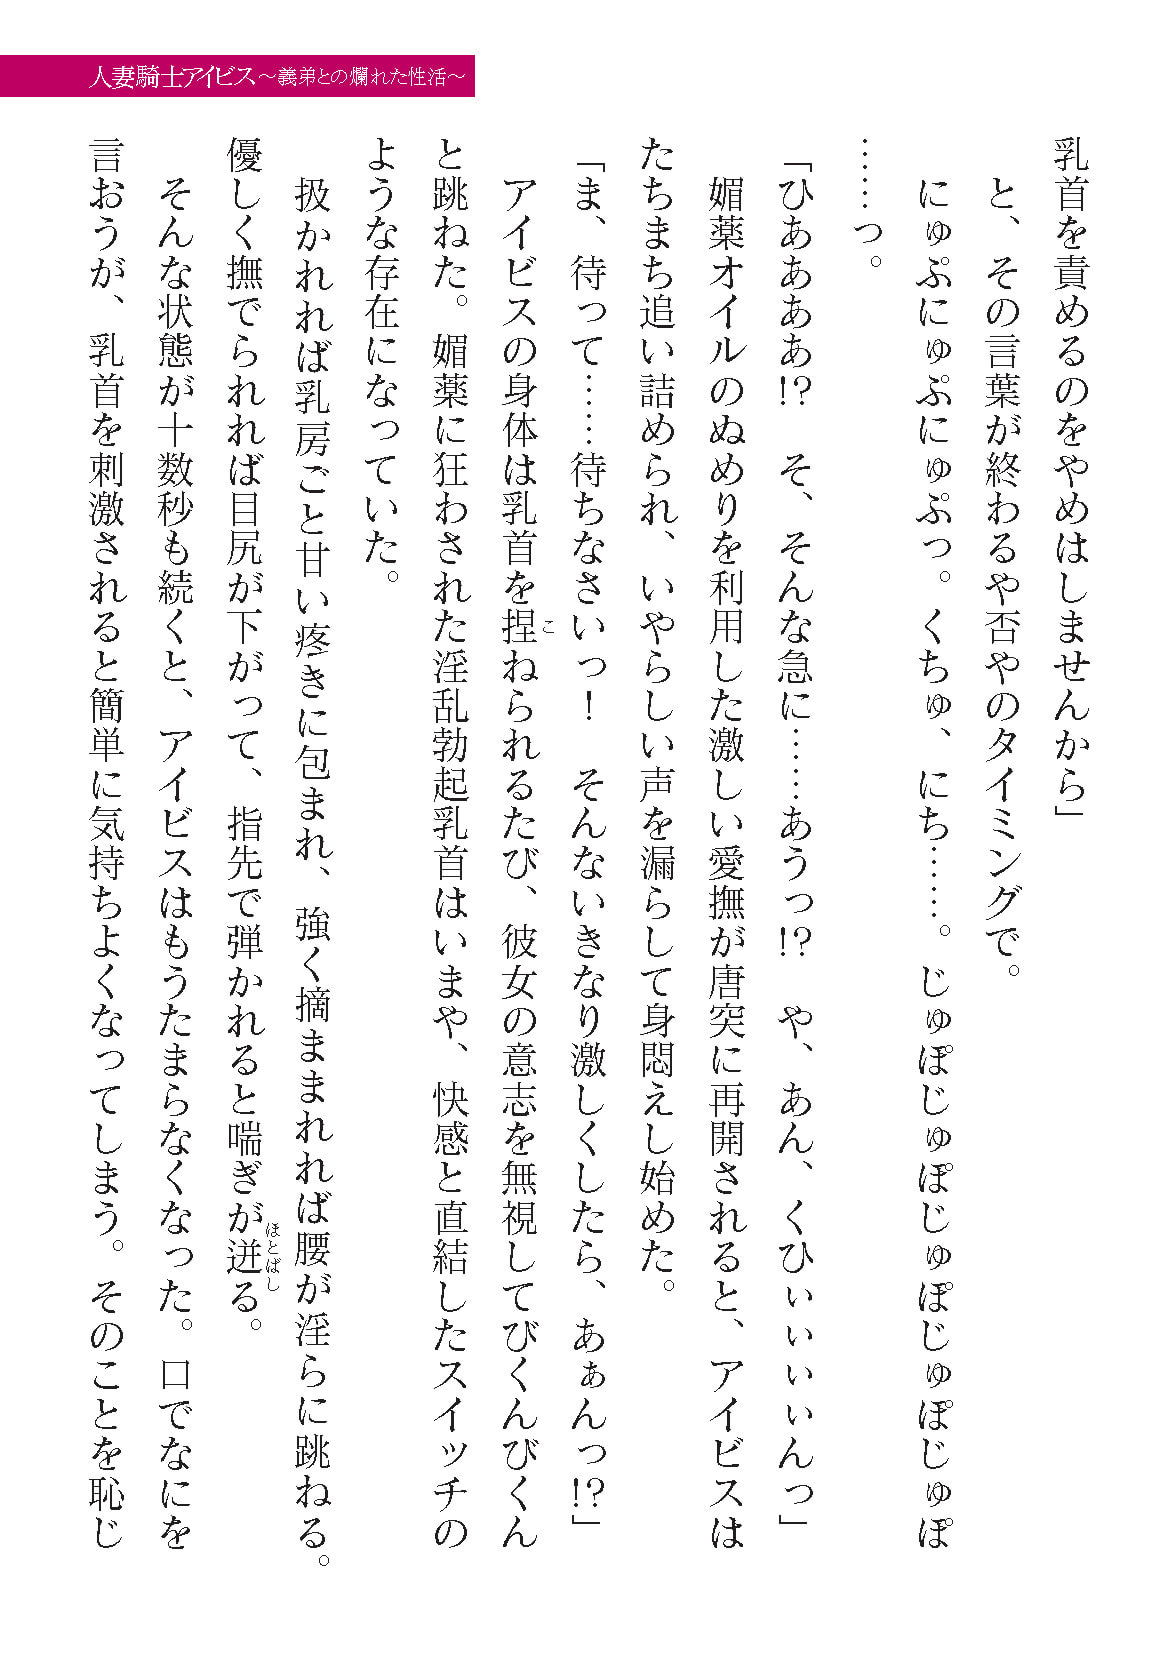 人妻騎士アイビス～義弟との爛れた性活～
乳首を責めるのをやめはしませんから」
と、その言葉が終わるや否やのタイミングで。
にゅぷにゅぷにゅぷっ。くちゅ、にち……。じゅぽじゅぽじゅぽじゅぽじゅぽ
……っ。
「ひあああ!?　そ、そんな急に……あうっ!?　や、あん、くひぃぃぃぃんっ」
媚薬オイルのぬめりを利用した激しい愛撫が唐突に再開されると、アイビスは
たちまち追い詰められ、いやらしい声を漏らして身悶えし始めた。
「ま、待って……待ちなさいっ！　そんないきなり激しくしたら、あぁんっ!?」
アイビスの身体は乳首を捏ねられるたび、彼女の意志を無視してびくんびくん
と跳ねた。媚薬に狂わされた淫乱勃起乳首はいまや、快感と直結したスイッチの
ような存在になっていた。
扱かれれば乳房ごと甘い疼きに包まれ、強く摘ままれれば腰が淫らに跳ねる。
優しく撫でられれば目尻が下がって、指先で弾かれると喘ぎが迸る。
そんな状態が十数秒も続くと、アイビスはもうたまらなくなった。口でなにを
言おうが、乳首を刺激されると簡単に気持ちよくなってしまう。そのことを恥じ
こ
ほとばし